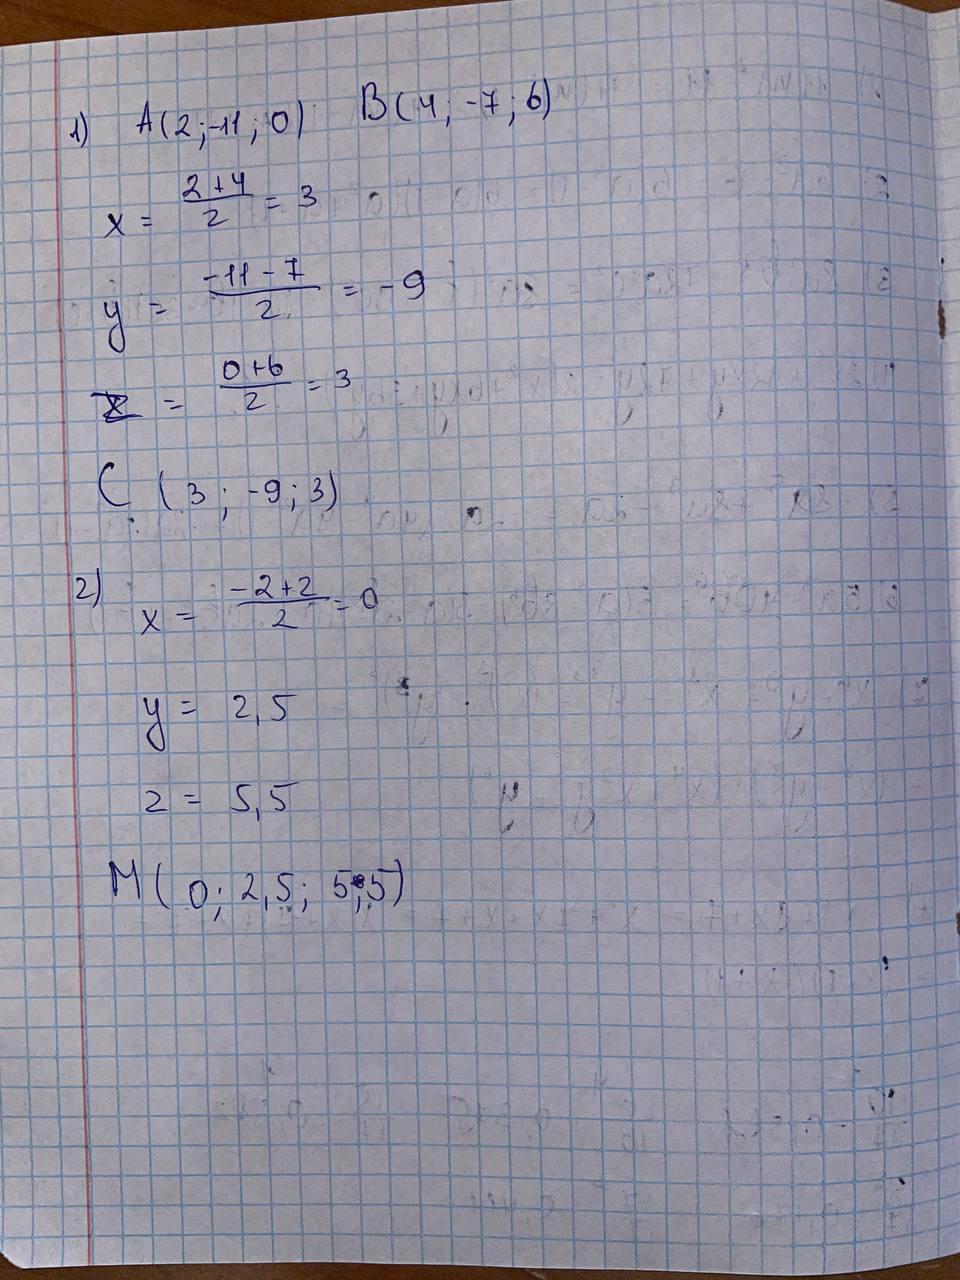 1) A(2;-11;0) B(4;-7;6)
x = (2+4)/2 = 3
y = (-11-7)/2 = -9
z = (0+6)/2 = 3
C (3; -9; 3)
2) x = (-2+2)/2 = 0
y = 2,5
z = 5,5
M(0; 2,5; 5,5)